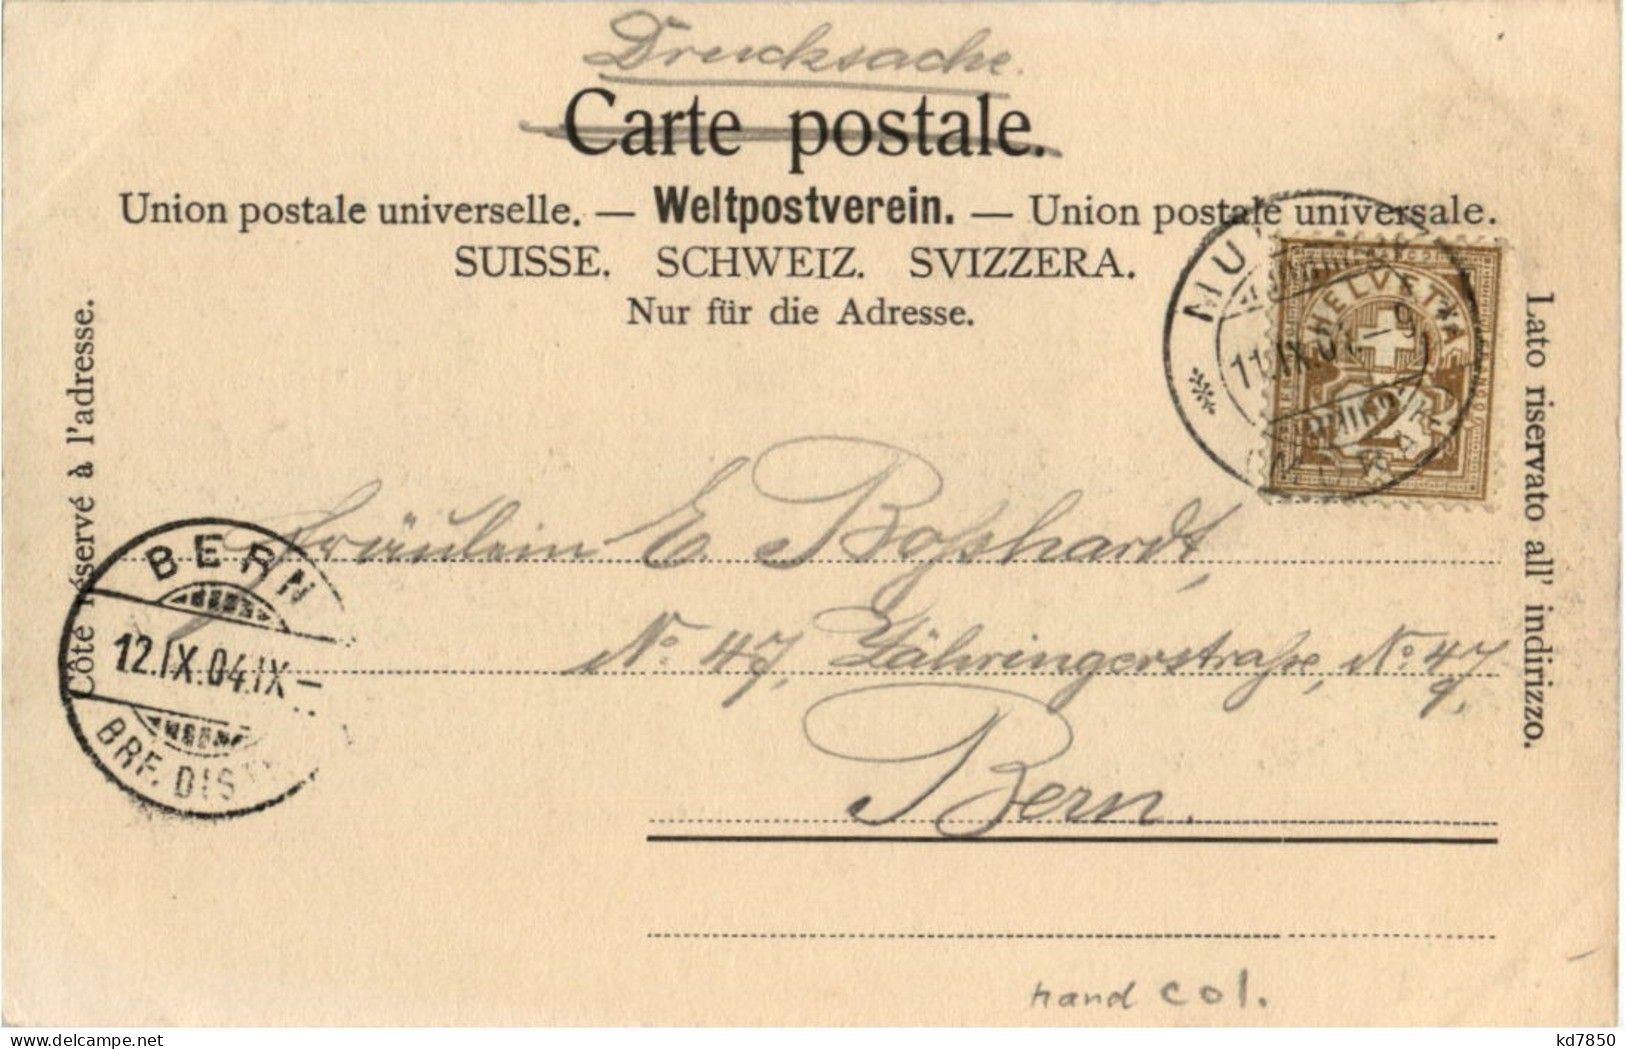 Drucksache.
Carte postale.
Union postale universelle. — Weltpostverein. — Union postale universale.
SUISSE. SCHWEIZ. SVIZZERA.
Nur für die Adresse.
Côté réservé à l'adresse.
Lato riservato all' indirizzo.
HELVETIA
2
11.IX.04.–9
Fräulein E. Boßhardt,
No. 47, Zähringerstraße, No. 47,
Bern.
BERN
12.IX.04.IX–
BRF. DIST
hand col.
delcampe.net
kd7850